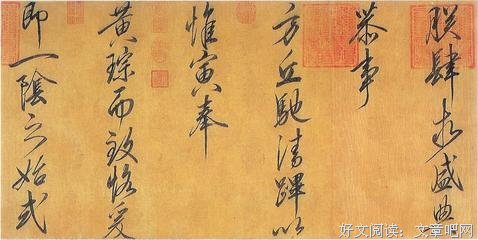 朕肆求盛典
恭事
方丘馳清蹕以
惟寅奉
黃琮而致恪爰
即一陰之始式
好文阅读：文章吧网